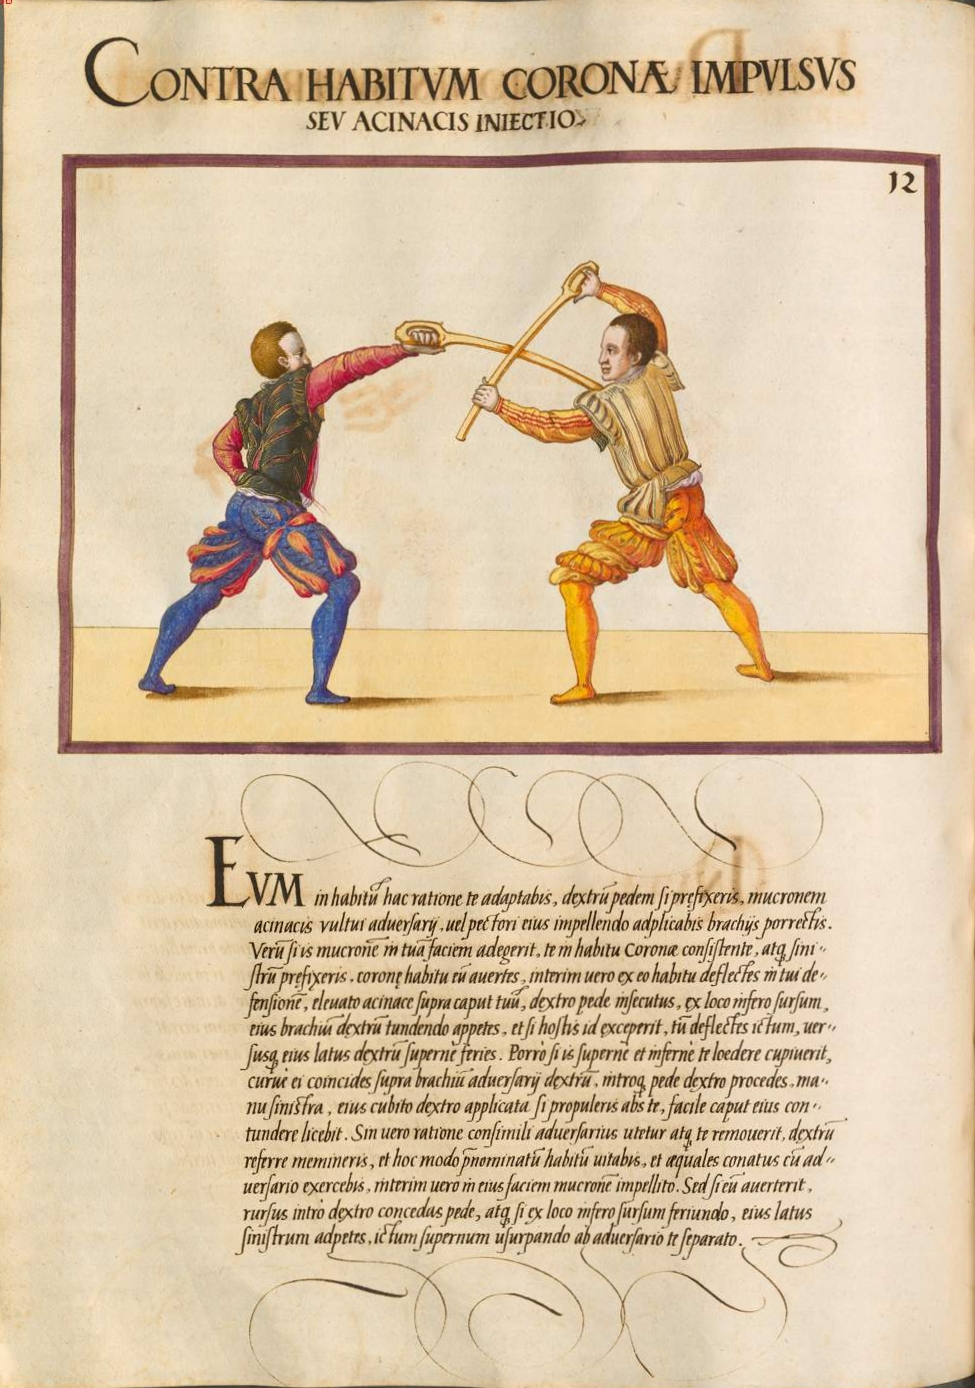 CONTRA HABITVM CORONÆ IMPVLSVS
SEV ACINACIS INIECTIO
12
EVM in habitũ hac ratione te adaptabis, dextrũ pedem si prefixeris, mucronem
acinacis vultui aduersarij, uel pectori eius impellendo adplicabis brachijs porrectis.
Verũ si is mucronẽ in tuã faciem adegerit, te in habitu Coronæ consistente, atq̃ sini-
strũ prefixeris, coronę habitu eũ auertes, interim uero ex eo habitu deflectes in tui de-
fensionẽ, eleuato acinace supra caput tuũ, dextro pede insecutus, ex loco infero sursum,
eius brachiũ dextrũ tundendo appetes, et si hostis id exceperit, tũ deflectes ictum, uer-
susq̃ eius latus dextrũ supernè feries. Porrò si is supernè et infernè te loedere cupiuerit,
curuè ei coincides supra brachiũ aduersarij dextrũ, introq̃ pede dextro procedes, ma-
nu sinistra, eius cubito dextro applicata si propuleris abs te, facile caput eius con-
tundere licebit. Sin uero ratione consimili aduersarius utetur atq̃ te remouerit, dextrũ
referre memineris, et hoc modo p̃nominatũ habitũ uitabis, et æquales conatus cũ ad-
uersario exercebis, interim uero in eius faciem mucronẽ impellito. Sed si eũ auerterit,
rursus intrò dextro concedas pede, atq̃ si ex loco infero sursum feriundo, eius latus
sinistrum adpetes, ictum supernum usurpando ab aduersario te separato.